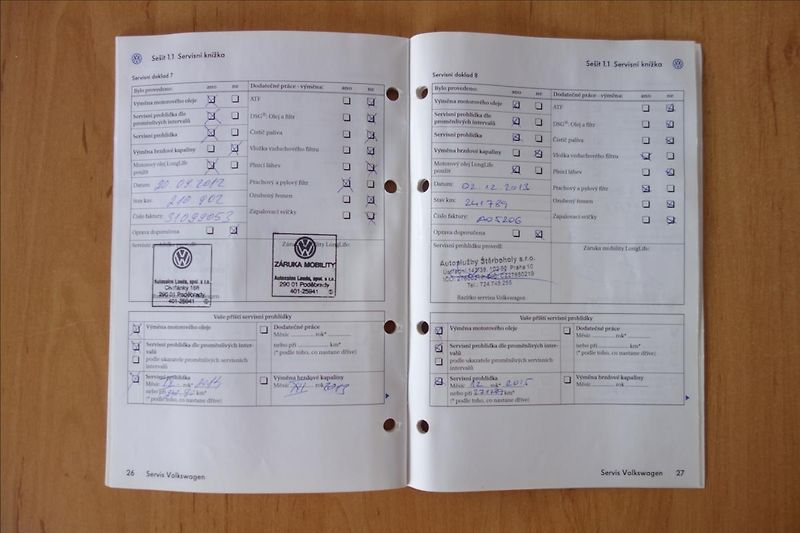 Sešit 1.1 Servisní knížka
Servisní doklad 7
Bylo provedeno: ano ne
Výměna motorového oleje
Servisní prohlídka dle
proměnlivých intervalů
Servisní prohlídka
Výměna brzdové kapaliny
Motorový olej LongLife
použit
Datum: 20.09.2012
Stav km: 210 902
Číslo faktury: 31099053
Oprava doporučena
Dodatečné práce - výměna: ano ne
ATF
DSG®: Olej a filtr
Čistič paliva
Vložka vzduchového filtru
Plnicí láhev
Prachový a pylový filtr
Ozubený řemen
Zapalovací svíčky
Záruka mobility LongLife:
Autosalon Louda, spol. s r.o.
290 01 Poděbrady
401-25941
ZÁRUKA MOBILITY
Autosalon Louda, spol. s r.o.
290 01 Poděbrady
401-25941
Vaše příští servisní prohlídky
Výměna motorového oleje
Servisní prohlídka dle proměnlivých inter-
valů
podle ukazatele proměnlivých servisních
intervalů
Servisní prohlídka
Měsíc rok*
nebo při km*
(* podle toho, co nastane dříve)
Dodatečné práce
Měsíc ......... rok*
nebo při ......... km*
(* podle toho, co nastane dříve)
Výměna brzdové kapaliny
Měsíc rok 2013
26 Servis Volkswagen
Sešit 1.1 Servisní knížka
Servisní doklad 8
Bylo provedeno: ano ne
Výměna motorového oleje
Servisní prohlídka dle
proměnlivých intervalů
Servisní prohlídka
Výměna brzdové kapaliny
Motorový olej LongLife
použit
Datum: 02.12.2013
Stav km: 241789
Číslo faktury: A05206
Oprava doporučena
Dodatečné práce - výměna: ano ne
ATF
DSG®: Olej a filtr
Čistič paliva
Vložka vzduchového filtru
Plnicí láhev
Prachový a pylový filtr
Ozubený řemen
Zapalovací svíčky
Servisní prohlídku provedl:
Záruka mobility LongLife:
Autoslužby Štěrboholy s.r.o.
Tel.: 724 749 255
Razítko servisu Volkswagen
Vaše příští servisní prohlídky
Výměna motorového oleje
Servisní prohlídka dle proměnlivých inter-
valů
podle ukazatele proměnlivých servisních
intervalů
Servisní prohlídka
Měsíc 12 rok* 2015
nebo při 271789 km*
(* podle toho, co nastane dříve)
Dodatečné práce
Měsíc ......... rok*
nebo při ......... km*
(* podle toho, co nastane dříve)
Výměna brzdové kapaliny
Měsíc ......... rok
Servis Volkswagen 27